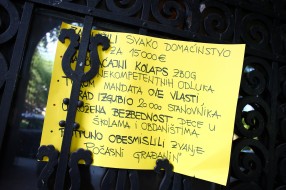 SVAKO DOMAĆINSTVO
ZA 15000€
KOLAPS ZBOG
NEKOMPETENTNIH ODLUKA
MANDATA OVE VLASTI
GRAD IZGUBIO 20000 STANOVNIKA
BEZBEDNOST DECE U
ŠKOLAMA I OBDANIŠTIMA
POTPUNO OBESMISLILI ZVANJE
"POČASNI GRAĐANIN"